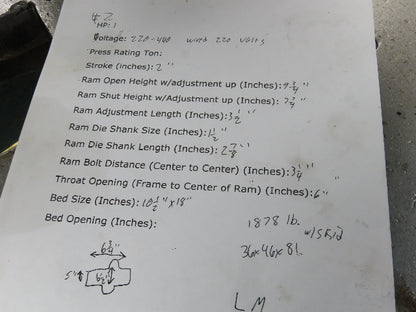 # 2
HP: 1
Voltage: 220-440 wired 220 volts
Press Rating Ton:
Stroke (inches): 2"
Ram Open Height w/adjustment up (Inches): 9 3/4"
Ram Shut Height w/Adjustment up (Inches): 7 3/4"
Ram Adjustment Length (Inches): 3 1/2"
Ram Die Shank Size (Inches): 1 1/2"
Ram Die Shank Length (Inches): 2 7/8"
Ram Bolt Distance (Center to Center) (Inches): 3 1/4"
Throat Opening (Frame to Center of Ram) (Inches): 6"
Bed Size (Inches): 10 1/2" x 18"
Bed Opening (Inches):
1878 lb.
w/skid
36x46x81
5"
LM